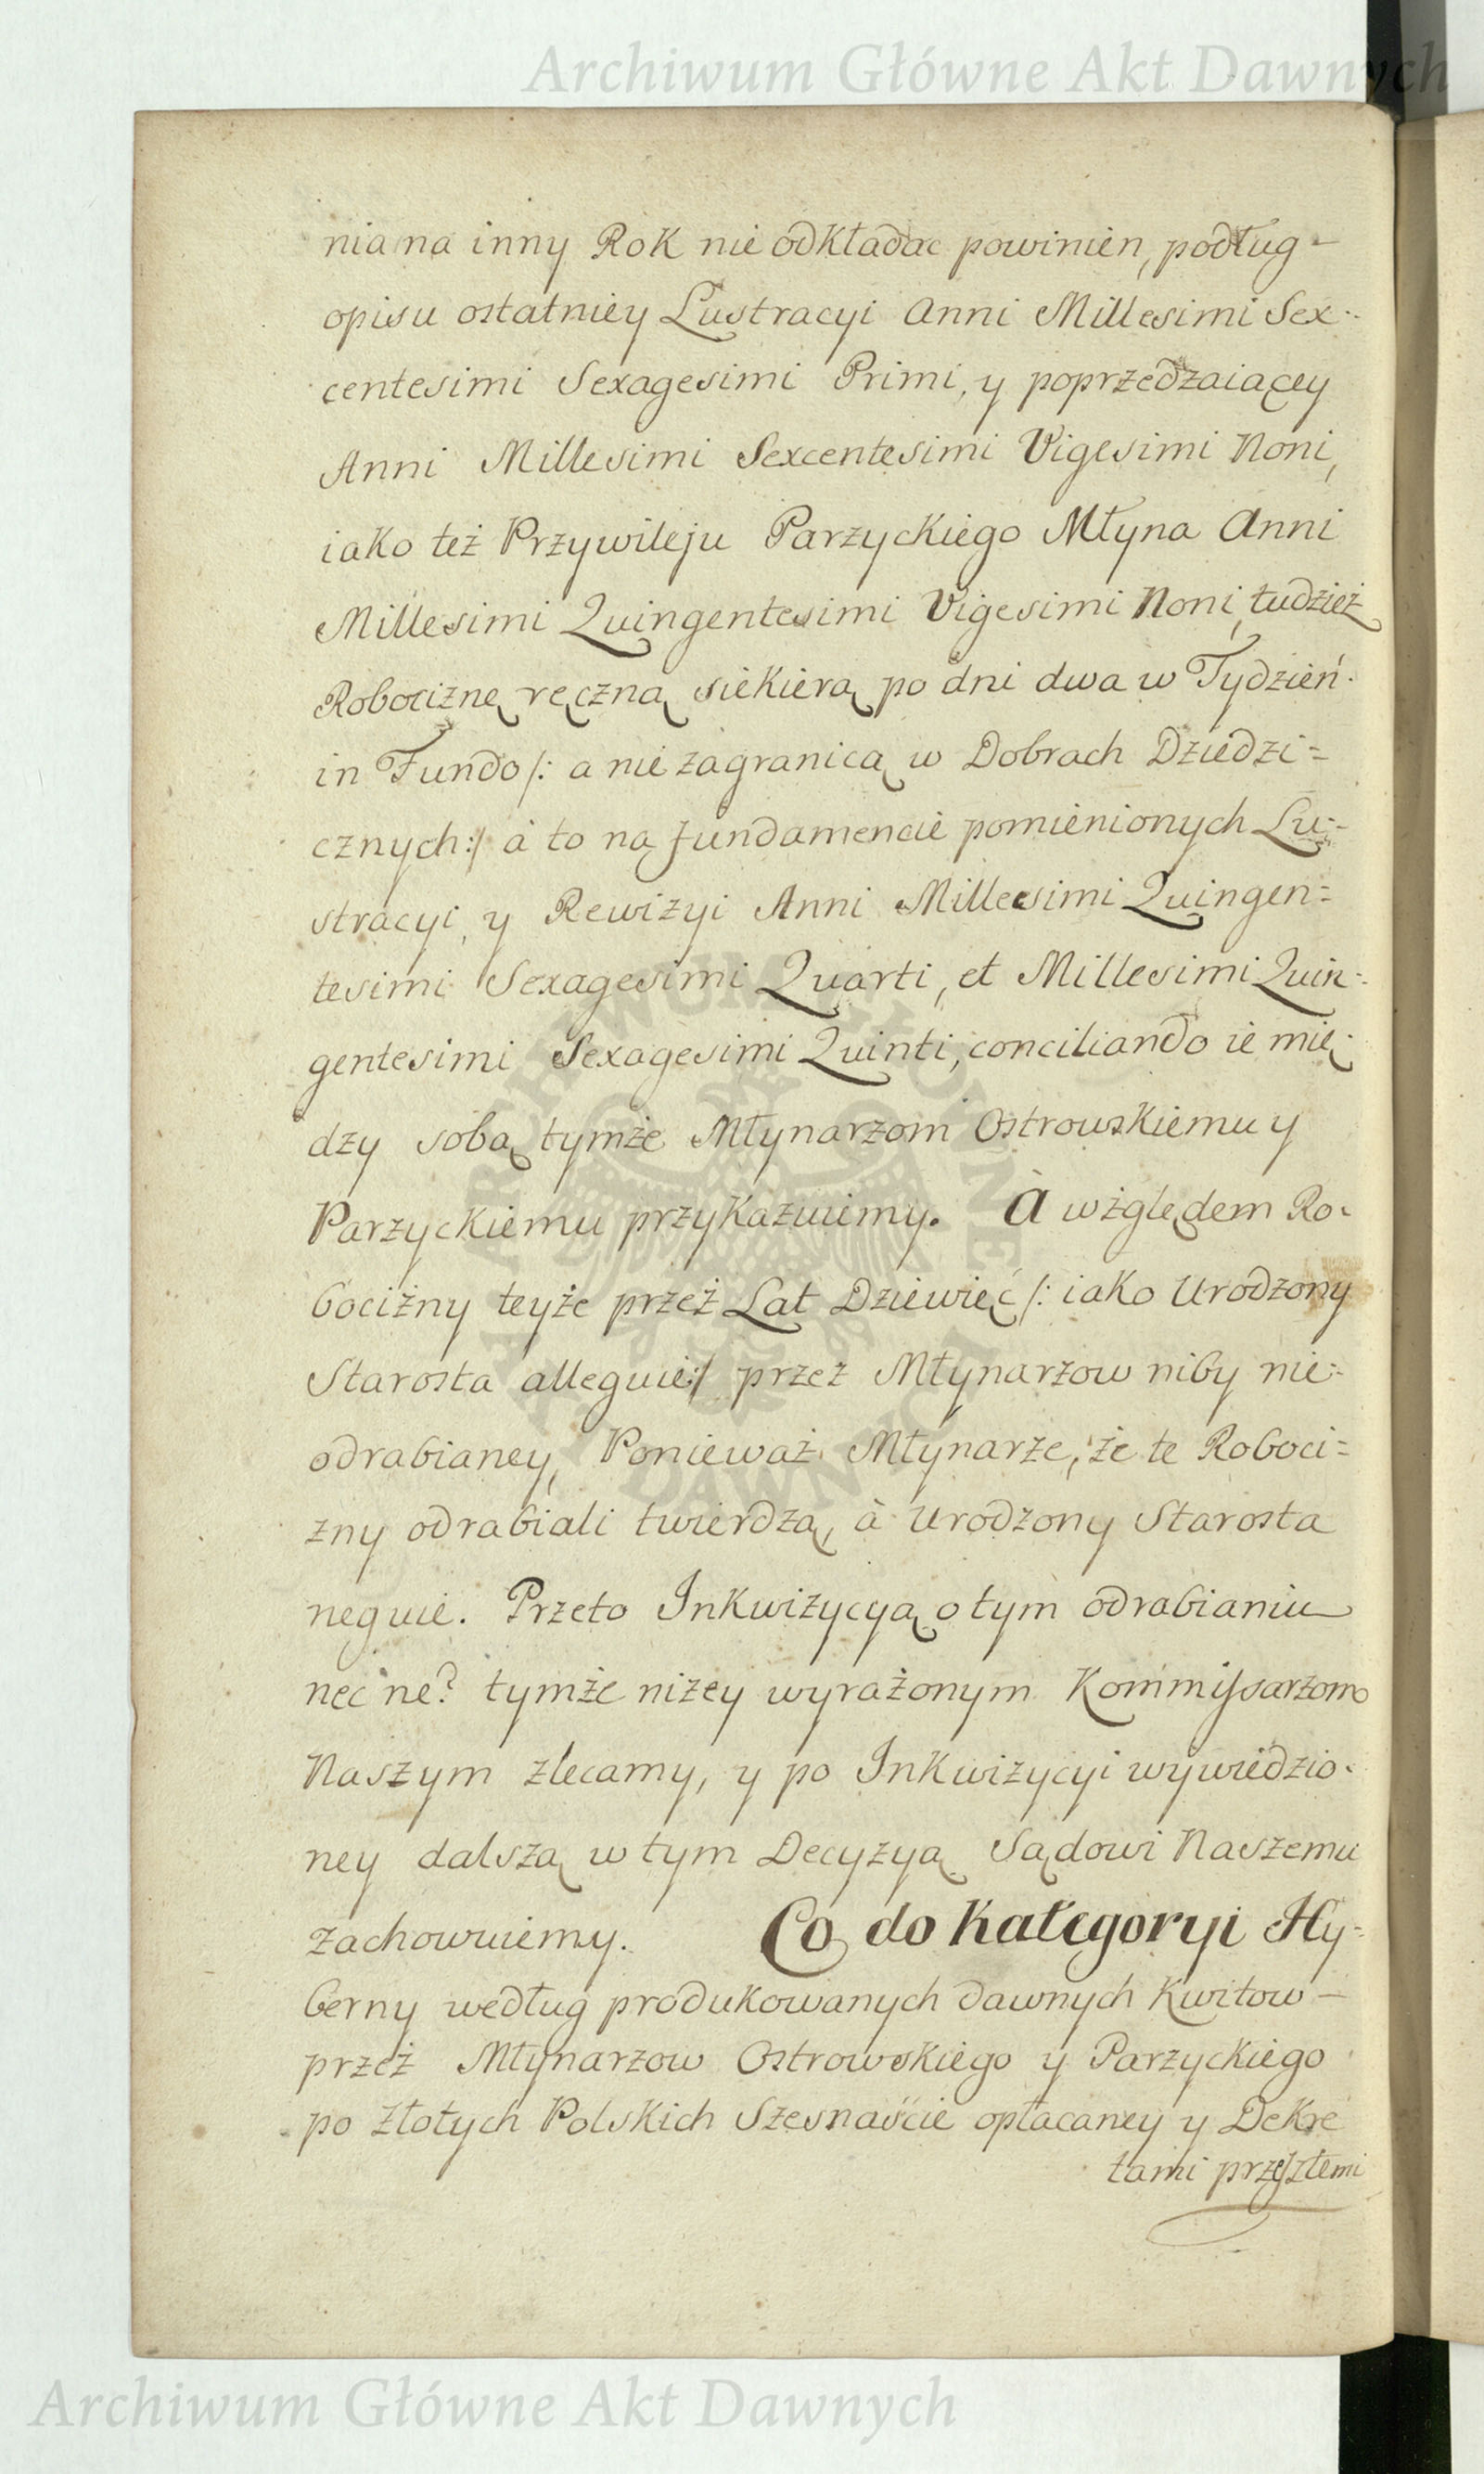 Archiwum Główne Akt Dawnych
nia na inny Rok nie odkładac powinien, podług –
opisu ostatniey Lustracyi Anni Millesimi Sex-
centesimi Sexagesimi Primi, y poprzedzaiącey
Anni Millesimi Sexcentesimi Vigesimi Noni,
iako też Przywileju Parzyckiego Młyna Anni
Millesimi Quingentesimi Vigesimi Noni, tudzież
Robociznę ręczną siekierą po dni dwa w Tydzień
in Fundo /: a nie zagranicą w Dobrach Dziedzi=
cznych :/ à to na fundamencie pomienionych Lu-
stracyi, y Rewizyi Anni Millesimi Quingen=
tesimi Sexagesimi Quarti, et Millesimi Quin-
gentesimi Sexagesimi Quinti, conciliando ie mię-
dzy sobą tymże Młynarzom Ostrowskiemu y
Parzyckiemu przykazuiemy. A względem Ro-
bociżny teyże przeż Lat Dziewięć /: iako Urodzony
Starosta alleguie :/ przez Młynarzow niby nie-
odrabianey, Ponieważ Młynarze, że te Roboci=
zny odrabiali twierdzą, à Urodzony Starosta
neguie. Przeto Inkwizycyą o tym odrabianiu
nec ne? tymże niżey wyrażonym Kommissarzom
Naszym zlecamy, y po Inkwizycyi wywiedzio-
ney dalszą w tym Decyzyą Sądowi Naszemu
zachowuiemy. Co do Kategoryi Hy-
berny według produkowanych dawnych Kwitow –
przeż Młynarzow Ostrowskiego y Parzyckiego
po Złotych Polskich Szesnaście opłacaney y Dekre
tami przeszłemi
Archiwum Główne Akt Dawnych